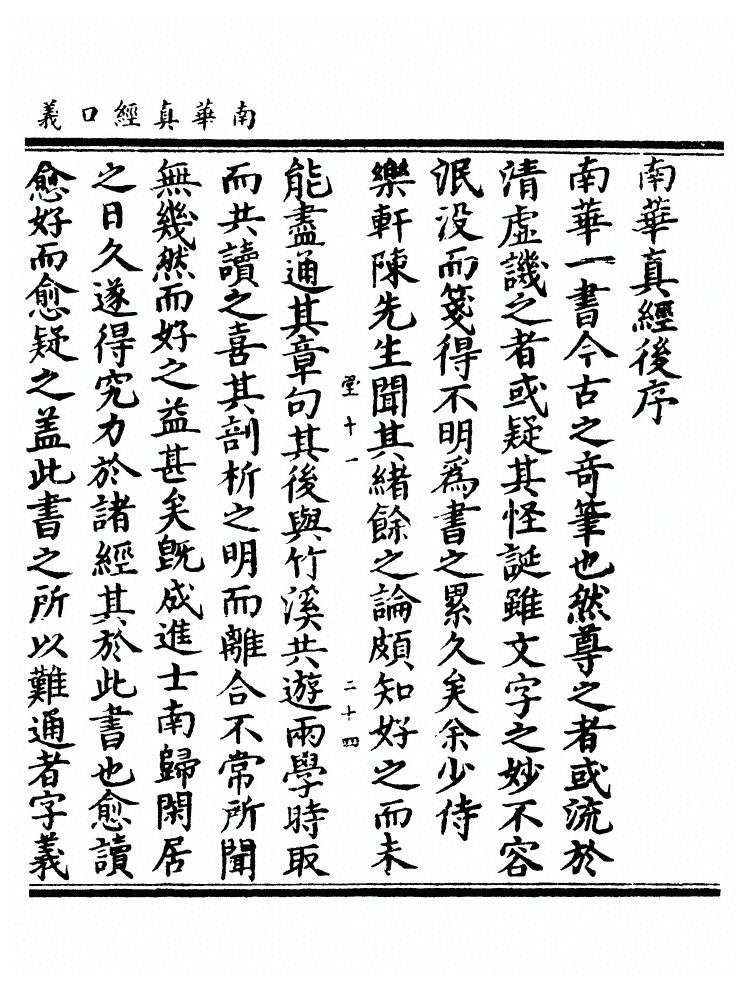 南華真經口義
南華真經後序
南華一書今古之奇筆也然尊之者或流於
清虛譏之者或疑其怪誕雖文字之妙不容
泯没而箋得不明爲書之累久矣余少侍
樂軒陳先生聞其緒餘之論頗知好之而未
能盡通其章句其後與竹溪共遊兩學時取
而共讀之喜其剖析之明而離合不常所聞
無幾然而好之益甚矣旣成進士南歸閑居
之日久遂得究力於諸經其於此書也愈讀
愈好而愈疑之盖此書之所以難通者字義
十一
二十四